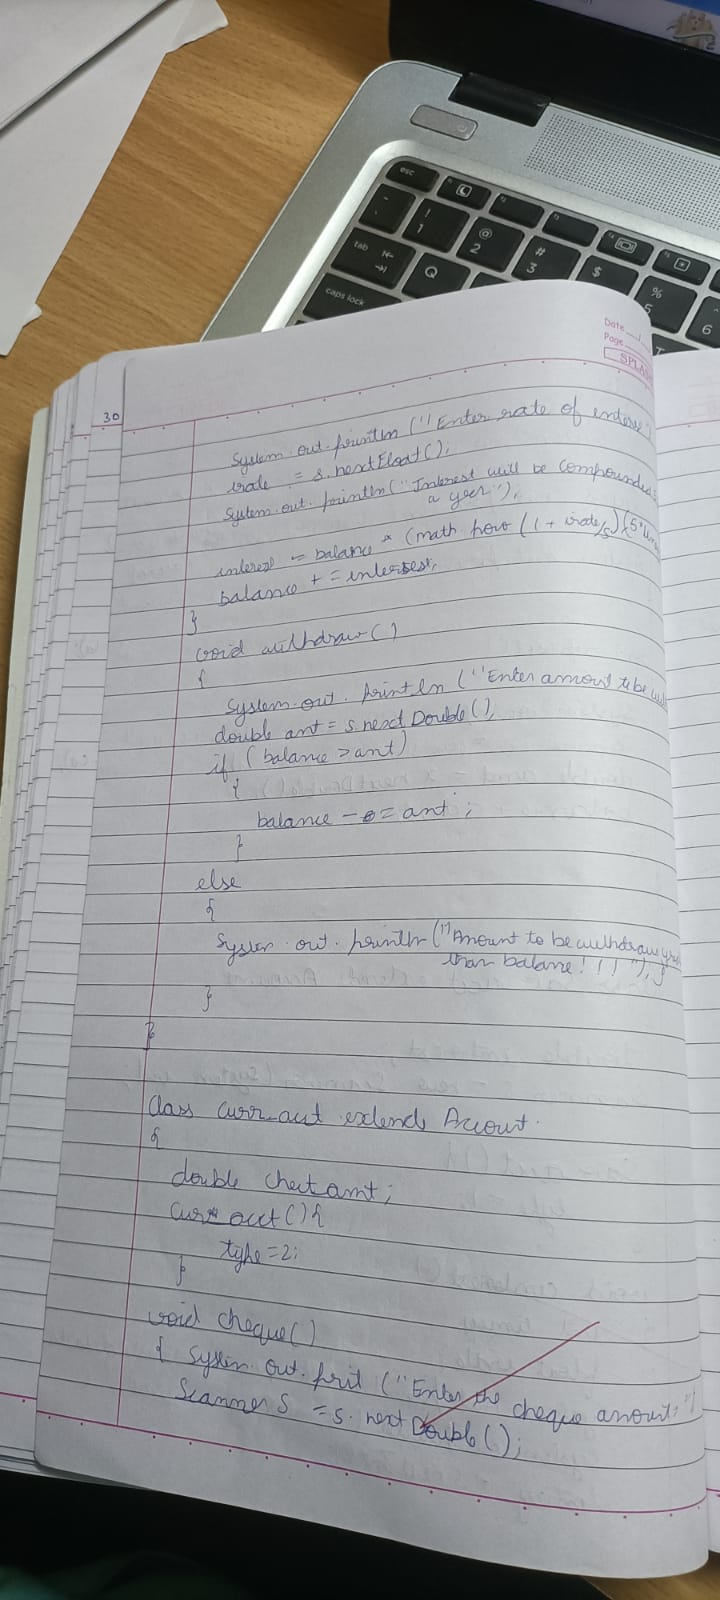 esc
!
1
@
2
#
3
$
%
5
6
tab
Q
T
caps lock
Date
Page
SPLA
30
System.out.println ("Enter rate of interes"
irate = s.nextFloat();
System.out.println("Interest will be compounded 5
a year");
interest = balance * (math pow (1 + irate/5)(5*
balance + = interest;
}
void withdraw()
{
System.out.println ("Enter amout to be
double amt = s.nextDouble();
if (balance > amt)
{
balance - = amt ;
}
else
{
System.out.println("Amount to be withdraw
than balance!!! "); }
}
}
Class curr_acct extends Account.
{
double chectamt;
Curr acct () {
type=2;
}
void cheque()
{ System.out.prit ("Enter the cheque amount:")
Scanner S = s.nextDouble();